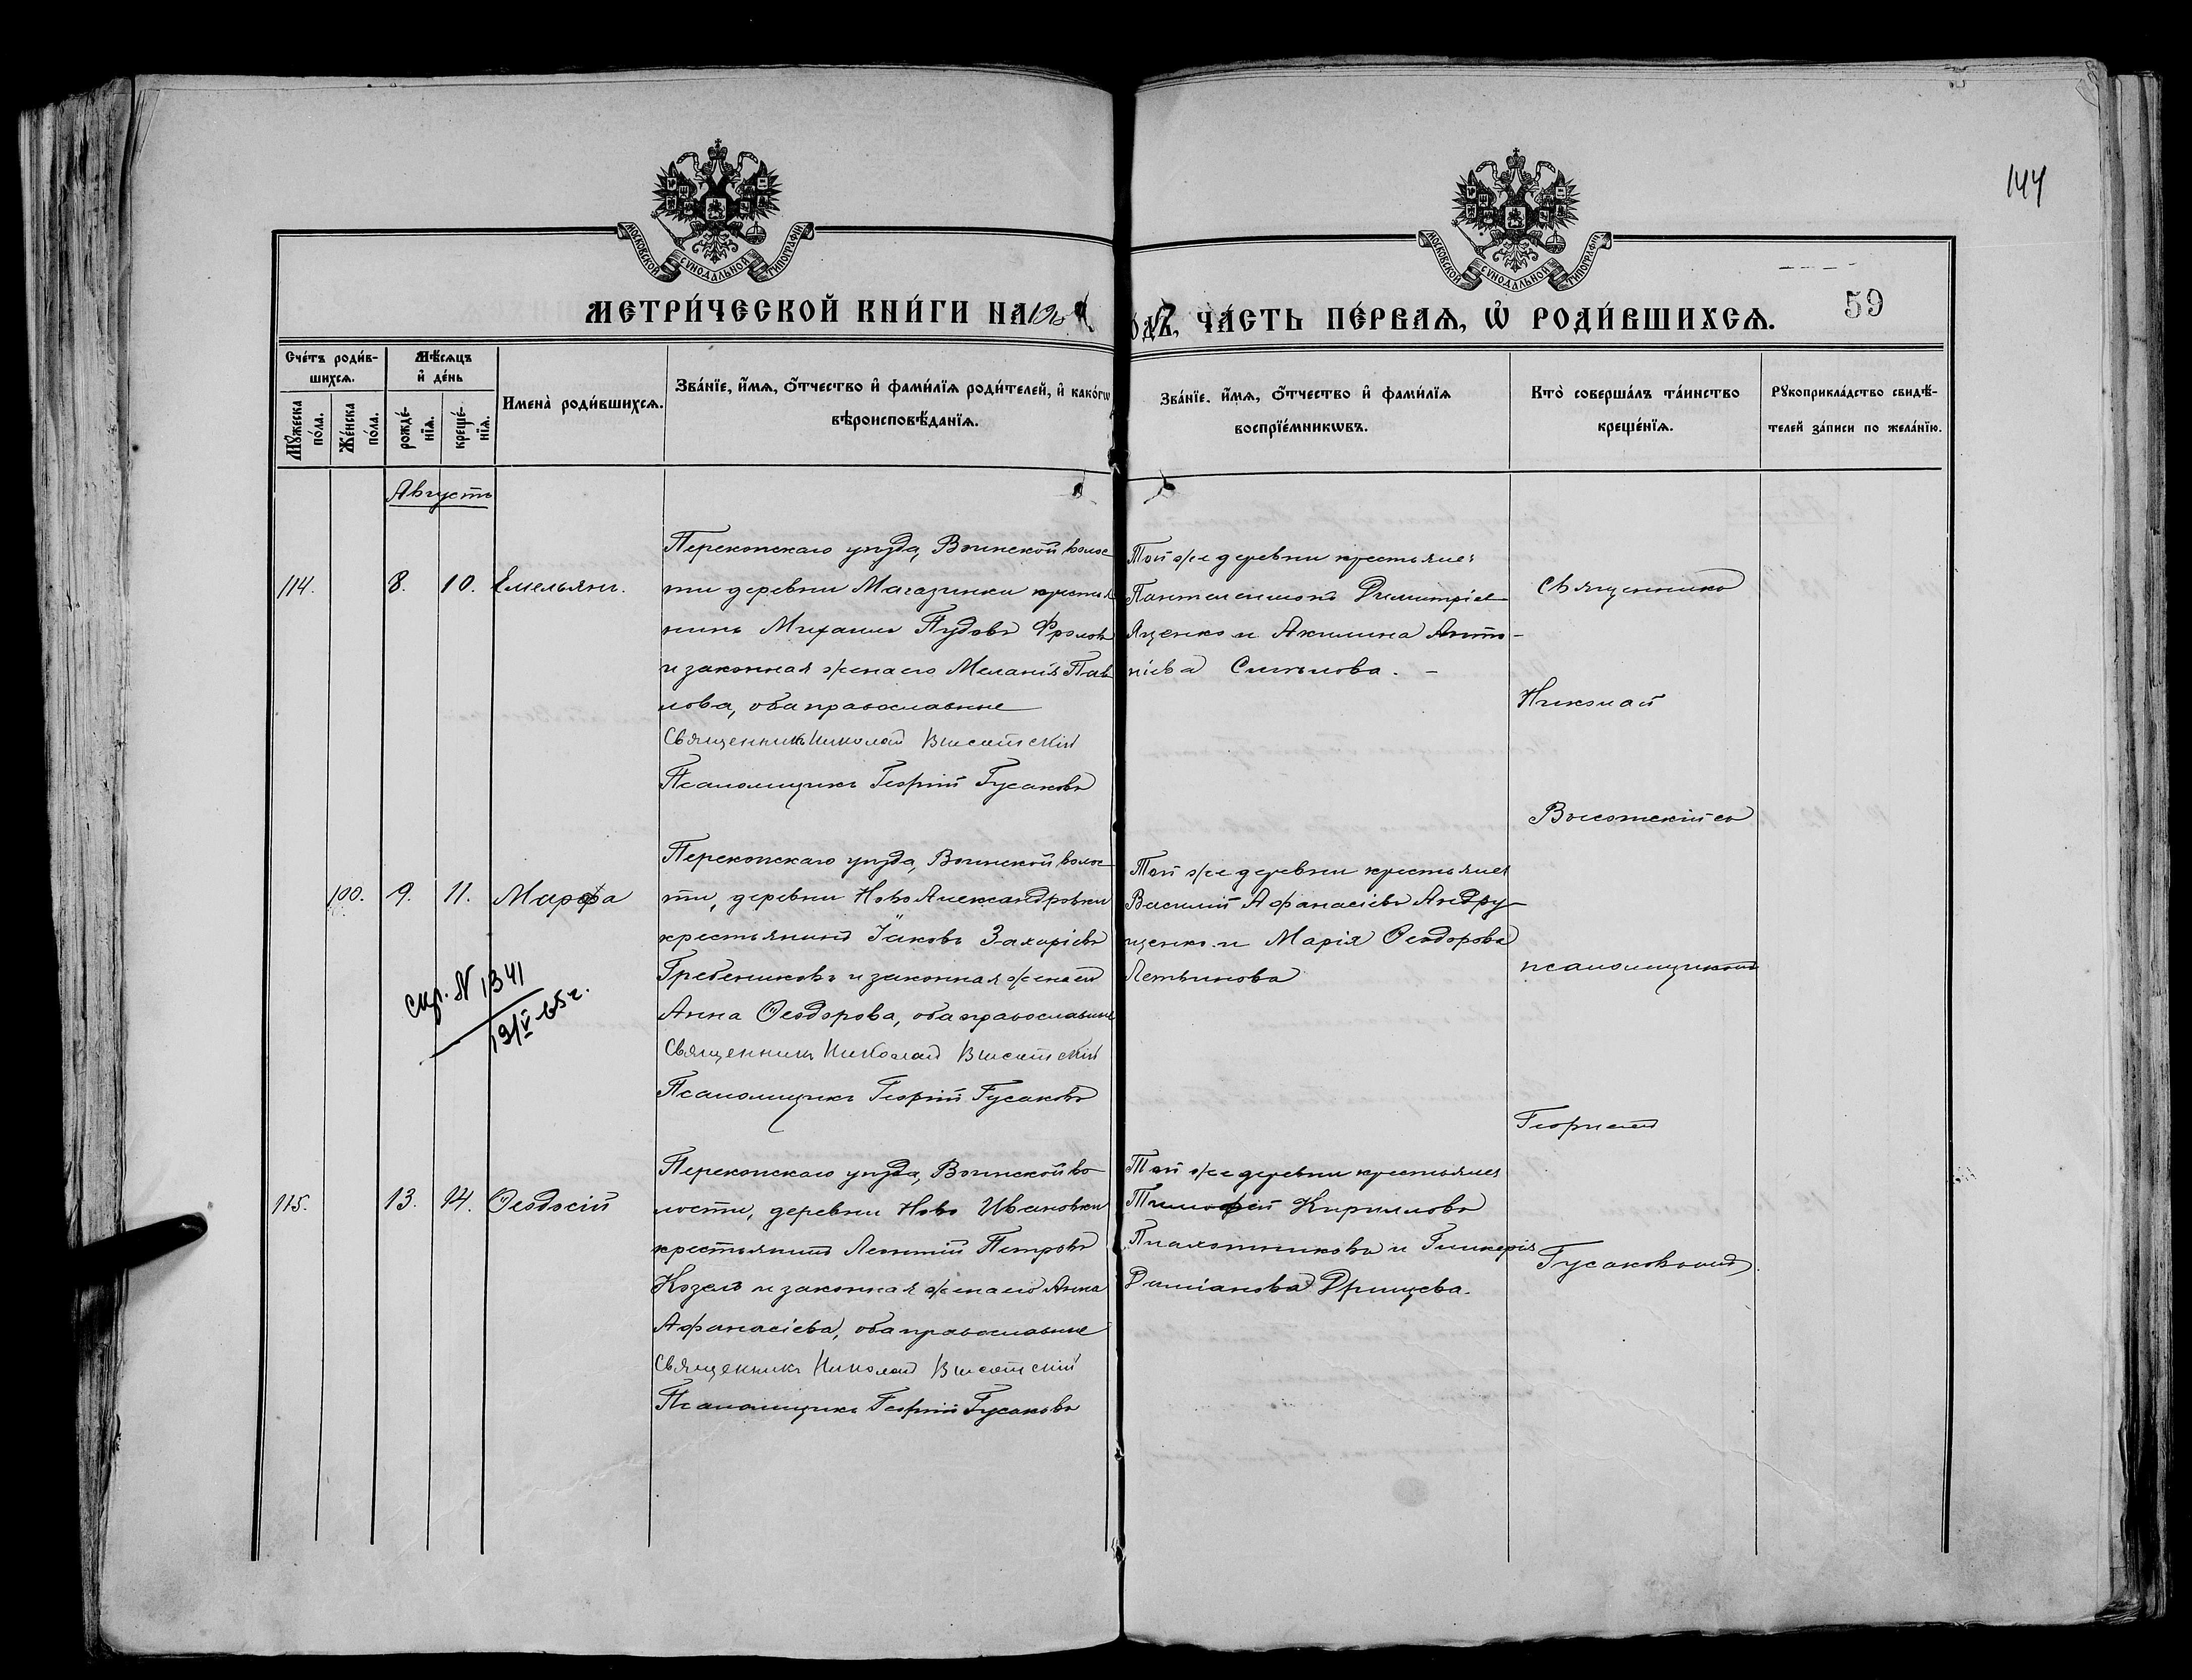 144
МОСКОВСКОЙ СѴНОДАЛЬНОЙ ТИПОГРАФІИ
МОСКОВСКОЙ СѴНОДАЛЬНОЙ ТИПОГРАФІИ
МЕТРИ́ЧЕСКОЙ КНИ́ГИ НА
ОДЪ, ЧА́СТЬ ПЕ́РВАѦ, Ѡ҆ РОДИ́ВШИХСѦ.
59
Сче́тъ роди́в-
шихсѧ.
Мѣ́сѧцъ
и҆ де́нь
Мꙋ́жеска
по́ла.
Же́нска
по́ла.
рожде́-
нїѧ.
креще́-
нїѧ.
Имена̀ роди́вшихсѧ.
Зва́нїе, и҆́мѧ, ѻ҆́тчество и҆ фами́лїѧ роди́телей, и҆ како́гѡ
вѣроисповѣ́данїѧ.
Зва́нїе, и҆́мѧ, ѻ҆́тчество и҆ фами́лїѧ
воспрїе́мникѡвъ.
Кто̀ соверша́лъ та́инство
креще́нїѧ.
Рꙋкоприкла́дство свидѣ́-
телей за́писи по жела́нїю.
Августъ
114.
8.
10.
Емельянъ.
Перекопскаго уѣзда, Воинской волос-
ти деревни Магазинки крестья
нинъ Михаилъ Пудовъ Фроловъ
и законная жена его Меланія Пав
лова, оба православные
Священникъ Николай Высотскій
Псаломщикъ Георгій Гусаковъ
Той же деревни крестьяне:
Пантелеимонъ Димитріев
Яценко и Акилина Анто-
ніева Сителова. -
Священникъ
Николай
Высотскій съ
псаломщикомъ
Георгіемъ
Гусаковымъ.
100.
9.
11.
Марфа
Перекопскаго уѣзда, Воинской волос-
ти, деревни Ново Александровки
крестьянинъ Іаковъ Захаріевъ
Гребениковъ и законная жена его
Анна Ѳеодорова, оба православные
Священникъ Николай Высотскій
Псаломщикъ Георгій Гусаковъ
Той же деревни крестьяне
Василій Афанасіевъ Андру-
щенко и Марія Ѳеодорова
Летвинова
спр. N 1341
19/V-65г.
115.
13.
14.
Ѳеодосій
Перекопскаго уѣзда, Воинской во-
лости, деревни Ново Ивановки
крестьянинъ Леонтій Петровъ
Козелъ и законная жена его Анна
Афанасіева, оба православные
Священникъ Николай Высотскій
Псаломщикъ Георгій Гусаковъ
Той же деревни крестьяне
Тимофей Кирилловъ
Плахотниковъ и Гликерія
Даміанова Дрищева.